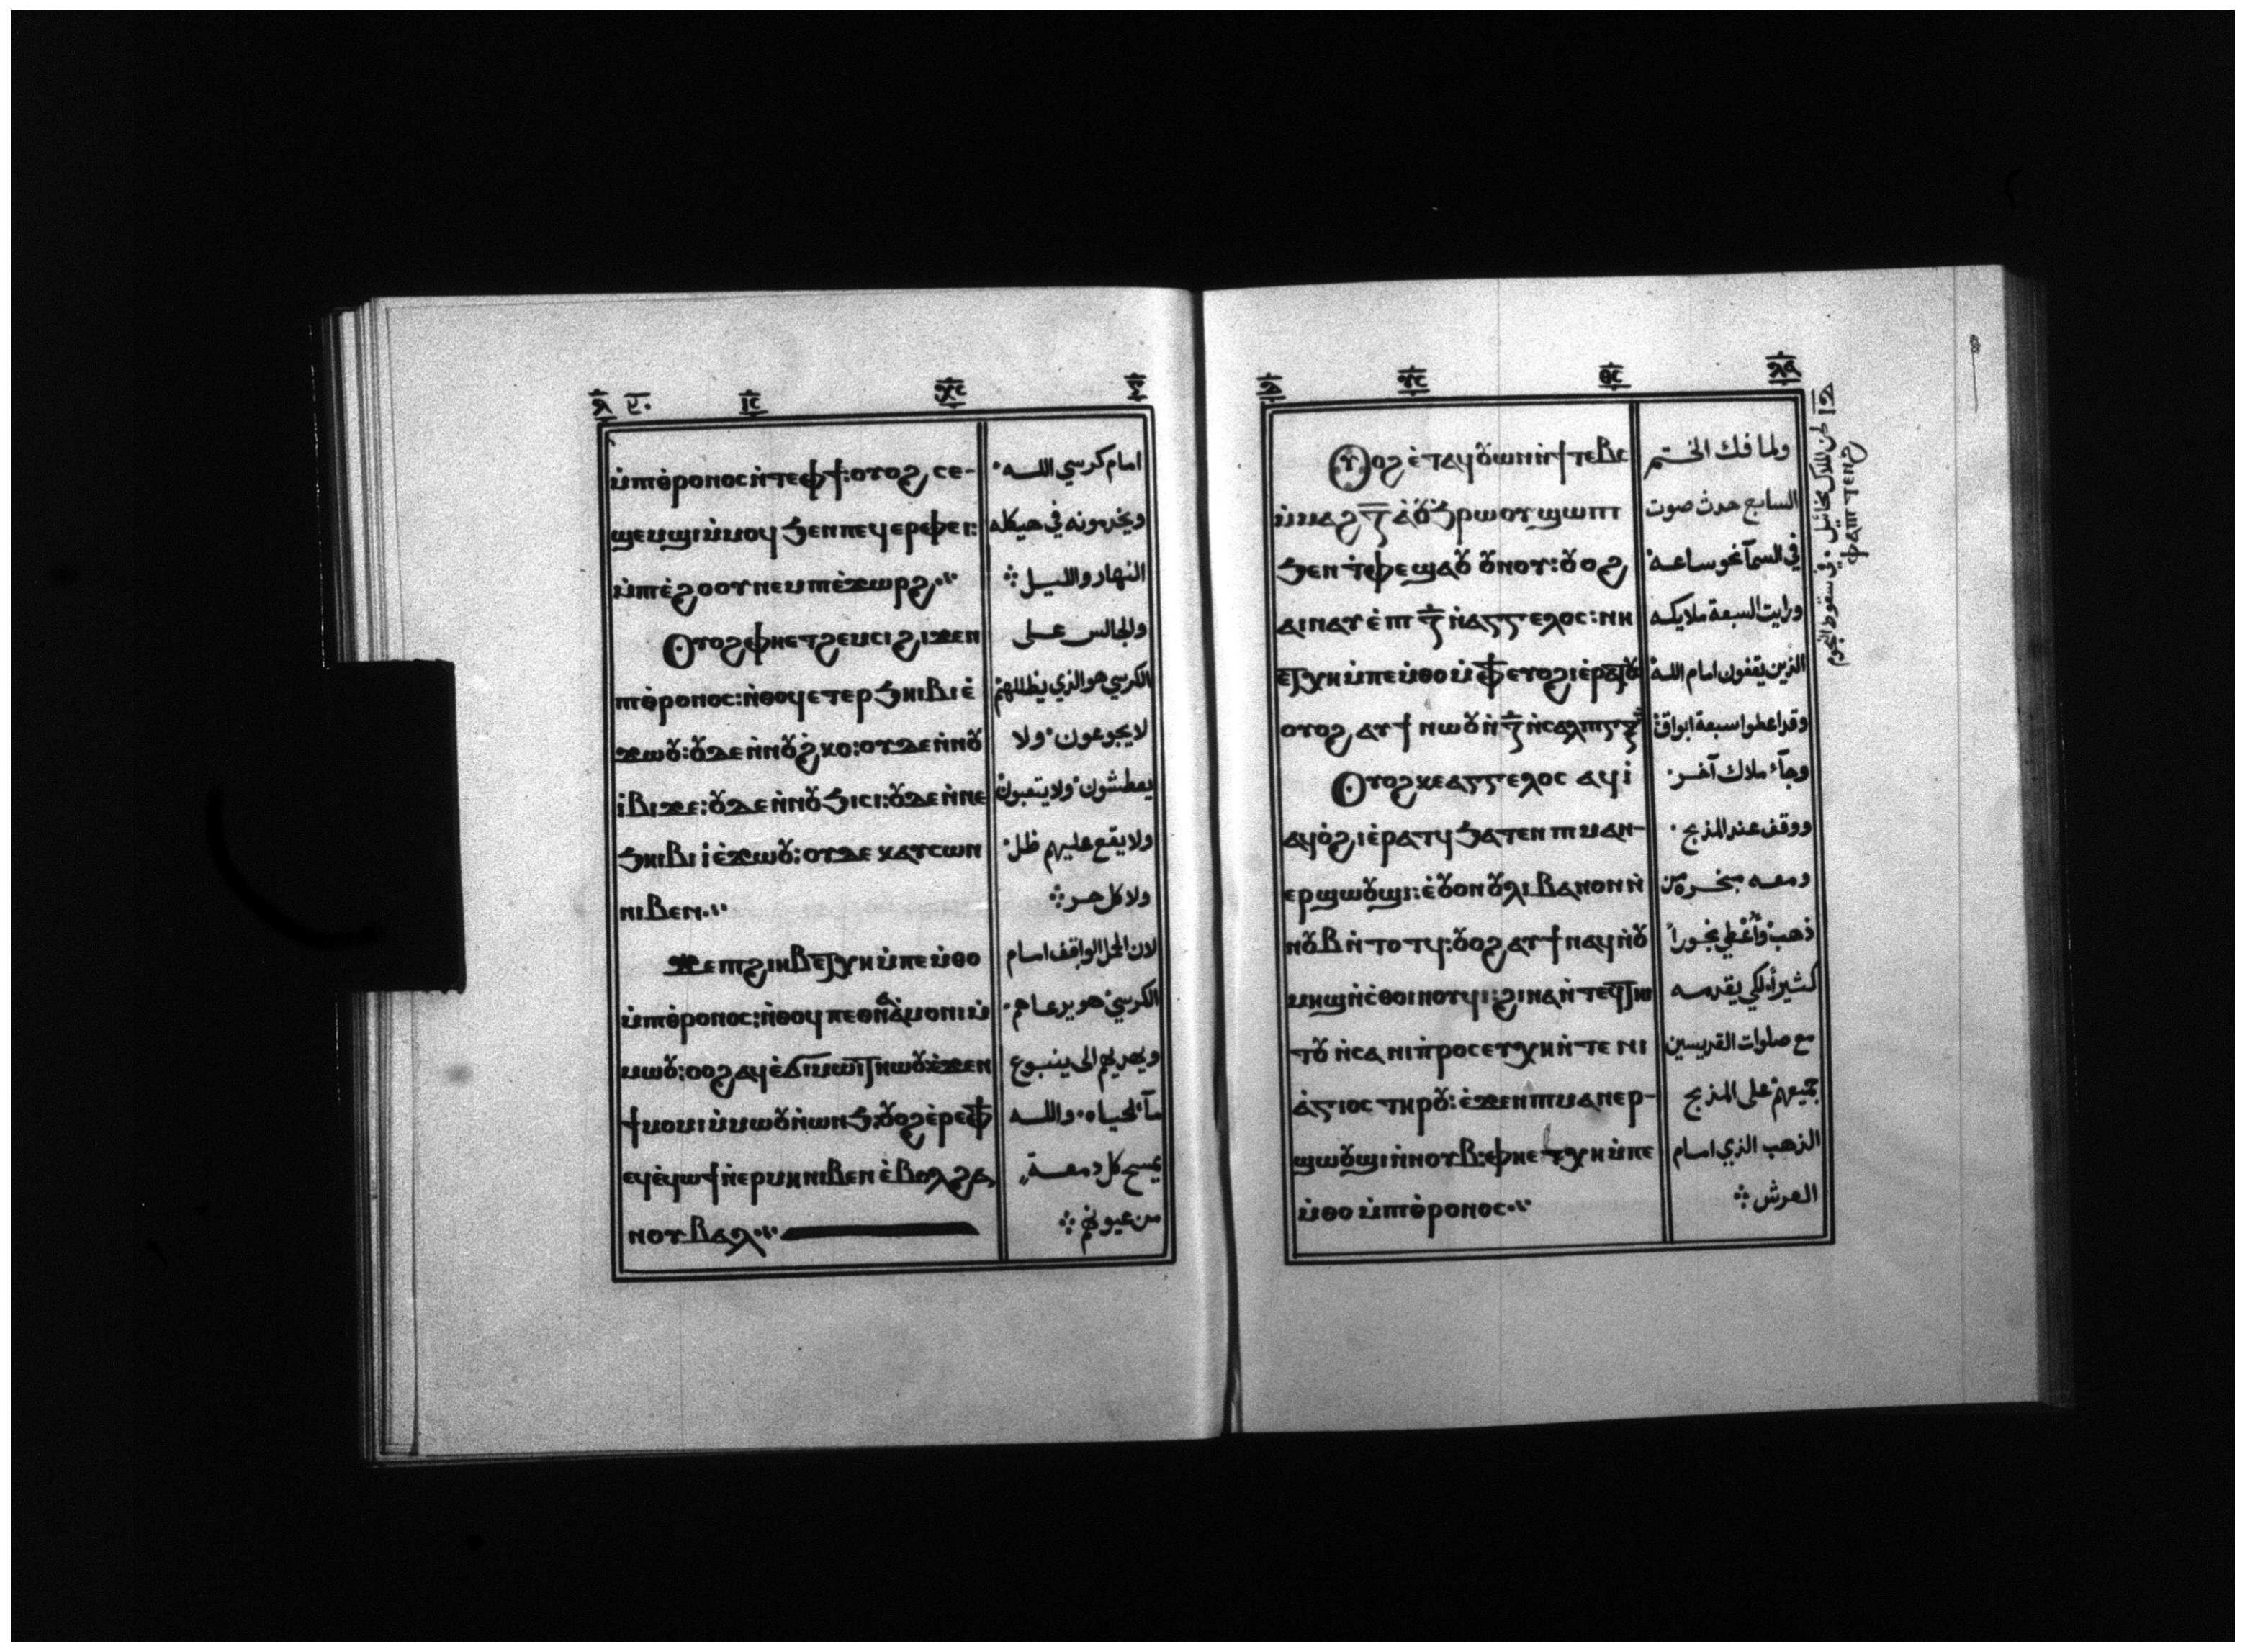 ⲙ̇ⲡⲑ̇ⲣⲟⲛⲟⲥ ⲛ̇ⲧⲉⲫϯ: ⲟⲩⲟϩ ⲥⲉ-
ϣⲉⲙϣⲓ ⲙ̇ⲙⲟϥ ϧⲉⲛ ⲡⲉϥⲉⲣⲫⲉⲓ:
ⲙ̇ⲡⲉ̇ϩⲟⲟⲩ ⲛⲉⲙ ⲡⲉ̇ϫⲱⲣϩ
Ⲟⲩⲟϩ ⲫⲏⲉⲧϩⲉⲙⲥⲓ ϩⲓϫⲉⲛ
ⲡⲑ̇ⲣⲟⲛⲟⲥ: ⲛ̇ⲑⲟϥ ⲉⲧⲉⲣϧⲏⲓⲃⲓ ⲉ̇
ϫⲱⲟⲩ: ⲟⲩⲇⲉ ⲛ̇ⲛⲟⲩϩ̇ⲕⲟ: ⲟⲩⲇⲉ ⲛ̇ⲛⲟⲩ
ⲓ̇ⲃⲓϫⲉ: ⲟⲩⲇⲉ ⲛ̇ⲛⲟⲩϧⲓⲥⲓ: ⲟⲩⲇⲉ ⲛ̇ⲛⲉ
ϧⲏⲓⲃⲓ ⲓ̇ ⲉ̇ϫⲱⲟⲩ: ⲟⲩⲇⲉ ⲕⲁⲩⲥⲱⲛ
ⲛⲓⲃⲉⲛ
ϫⲉ ⲡϩⲓⲏⲃ ⲉⲧⲭⲏ ⲙ̇ⲡⲉⲙ̇ⲑⲟ
ⲙ̇ⲡⲑ̇ⲣⲟⲛⲟⲥ: ⲛ̇ⲑⲟϥ ⲡⲉⲑⲛⲁⲁ̇ⲙⲟⲛⲓ ⲙ̇
ⲙⲱⲟⲩ: ⲛⲱⲟⲩ ⲉ̇ϫⲉⲛ
ϯⲙⲟⲩⲙⲓ ⲙ̇ⲙⲱⲟⲩ ⲛ̇ⲱⲛϧ: ⲟⲩⲟϩ ⲉ̇ⲣⲉ ⲫϯ
ⲉϥⲉ̇ϥⲱϯ ⲛ̇ⲉⲣⲙⲏ ⲛⲓⲃⲉⲛ ⲉ̇ⲃⲟⲗϩⲁ
ⲛⲟⲩⲃⲁⲗ
امام كرسي اللـه
ويخدمونه في هيكله
النهار والليـل
والجالس عـلى
الكرسي هو الذي يظللهم
لا يجوعون ولا
يعطشون ولا يتعبون
ولا يقع عليهم ظل
ولا كل حـر
لان الحمل الواقف امام
الكرسي هو يرعـاهم
ويهديهم الى ينبـوع
مآء الحياه واللـه
يمسح كل دمعـة
من عيونهم
Ⲟⲩⲟϩ ⲉ̇ⲧⲁϥⲟⲩⲱⲛ ⲛ̇ϯⲧⲉⲃⲥ
ⲙ̇ⲙⲁϩ ⲍ̅ ⲁ̇ⲟⲩϧⲣⲱⲟⲩ ϣⲱⲡⲓ
ϧⲉⲛ ⲧ̇ⲫⲉ ϣⲁⲟⲩ ⲟⲩⲛⲟⲩ: ⲟⲩⲟϩ
ⲁⲓⲛⲁⲩ ⲉ̇ⲡⲓ ⲍ̅ ⲛ̇ⲁⲅⲅⲉⲗⲟⲥ: ⲛⲏ
ⲉⲧⲭⲏ ⲙ̇ⲡⲉⲙ̇ⲑⲟ ⲙ̇ⲫϯ ⲉⲩⲟϩⲓ ⲉ̇ⲣⲁⲧⲟⲩ
ⲟⲩⲟϩ ⲁⲩϯ ⲛⲱⲟⲩ ⲛ̇ ⲍ̅ ⲛ̇ⲥⲁⲗⲡⲓⲅⲅⲟⲥ
Ⲟⲩⲟϩ ⲕⲉⲁⲅⲅⲉⲗⲟⲥ ⲁϥⲓ̇
ⲁϥⲟ̇ϩⲓ ⲉ̇ⲣⲁⲧϥ ϧⲁⲧⲉⲛ ⲡⲓⲙⲁⲛ-
ⲉⲣϣⲱⲟⲩϣⲓ: ⲉ̇ⲟⲩⲟⲛ ⲟⲩⲗⲓⲃⲁⲛⲟⲛ ⲛ̇
ⲛⲟⲩⲃ ⲛ̇ⲧⲟⲧϥ: ⲟⲩⲟϩ ⲁⲩϯ ⲛⲁϥ ⲛ̇ⲟⲩ
ⲙⲏϣ ⲛ̇ⲥⲑⲟⲓⲛⲟⲩϥⲓ: ϩⲓⲛⲁ ⲛ̇ⲧⲉϥⲧⲏⲓ
ⲧⲟⲩ ⲛ̇ⲥⲁ ⲛⲓⲡ̇ⲣⲟⲥⲉⲩⲭⲏ ⲛ̇ⲧⲉ ⲛⲓ
ⲁ̇ⲅⲓⲟⲥ ⲧⲏⲣⲟⲩ: ⲉ̇ϫⲉⲛ ⲡⲓⲙⲁⲛⲉⲣ-
ϣⲱⲟⲩϣⲓ ⲛ̇ⲛⲟⲩⲃ: ⲫⲏⲉⲧⲭⲏ ⲙ̇ⲡⲉ
ⲙ̇ⲑⲟ ⲙ̇ⲡⲑ̇ⲣⲟⲛⲟⲥ
ولما فك الختـم
السابع حدث صوت
في السمآ نحو ساعـه
ورايت السبعة ملايكـه
الذين يقفون امام اللـه
وقد اعطوا سبعة ابواق
وجآء ملاك آخـر
ووقف عند المذبح
ومعـه مبخـرة من
ذهب وأُعْطي بخوراً
كثيراً لكي يقدمـه
مع صلوات القديسين
جميعهم على المذبح
الذهب الذي امـام
العرش
لحن الملاك مخائيل في سقوط النجوم
ⲫⲁⲡⲓ ⲧⲉⲛϩ